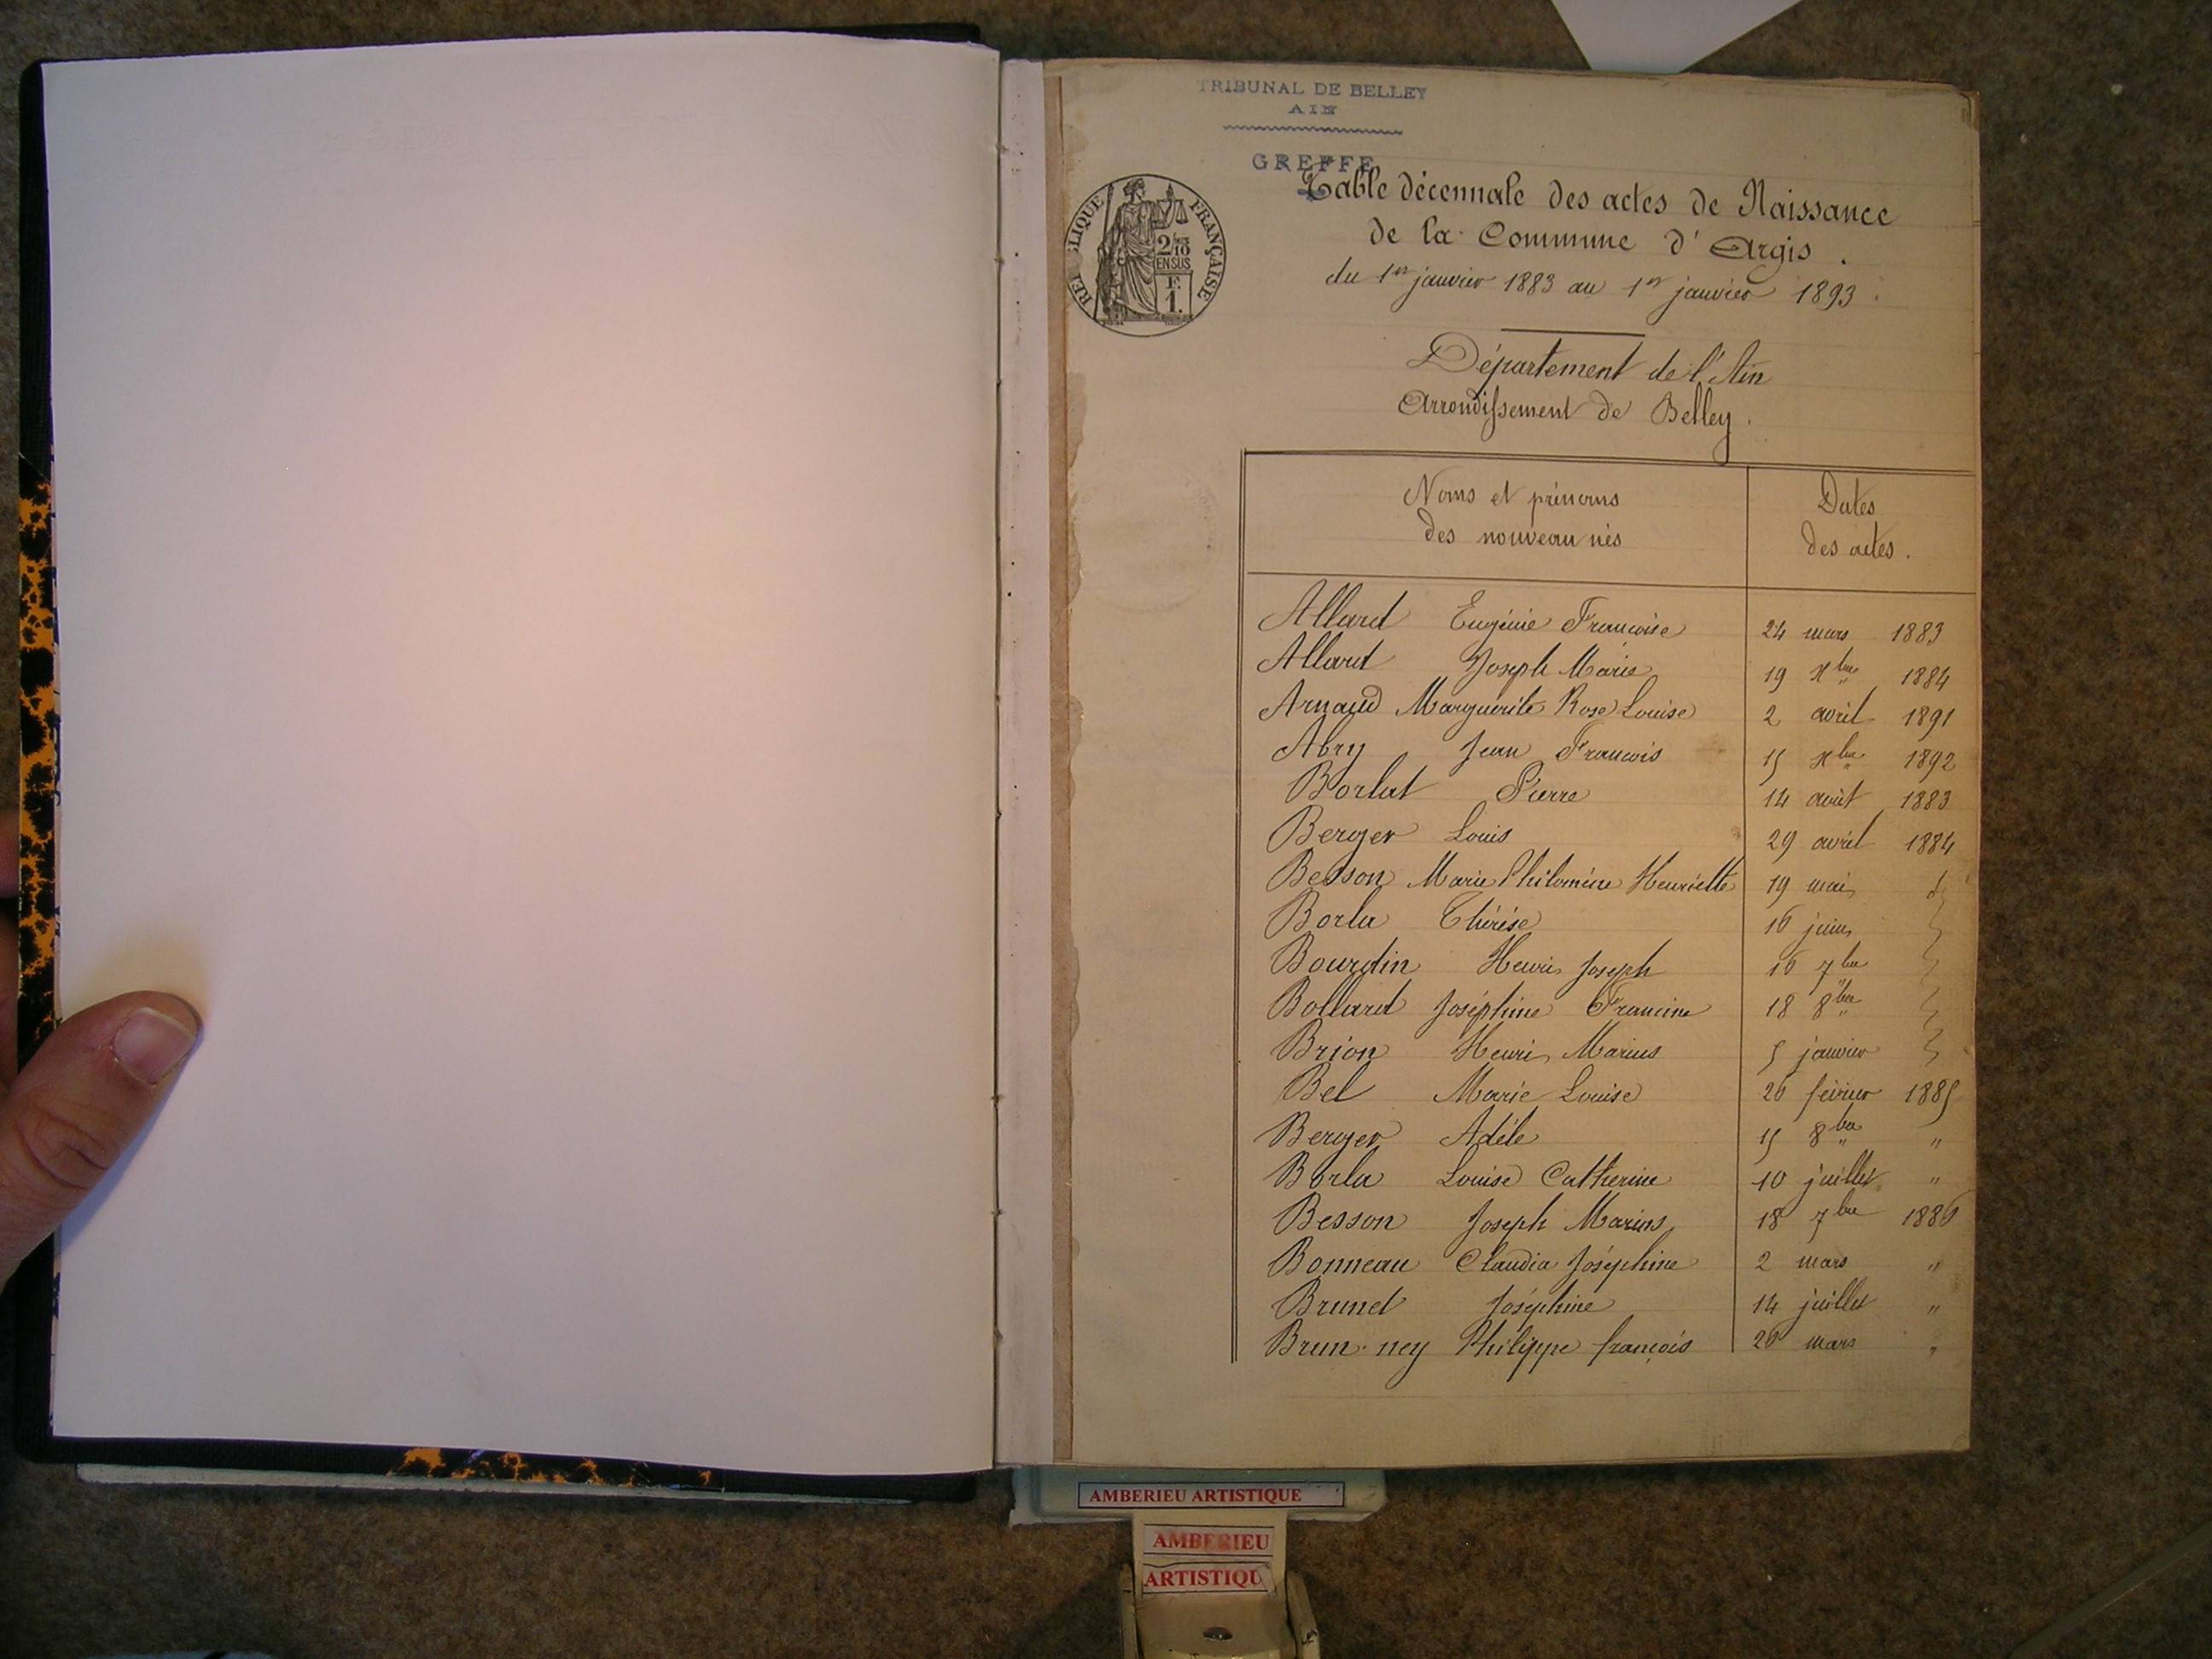 TRIBUNAL DE BELLEY
AIN
GREFFE
Table décennale des actes de Naissance
de la Commune d'Argis.
du 1er janvier 1883 au 1er janvier 1893.
Département de l'Ain
Arrondissement de Belley.
FRANÇAISE
2/10
EN SUS
F.
1.
Noms et prénoms
des nouveau nés
Dates
des actes.
Allard Eugénie Francoise 24 mars 1883
Allard Joseph Marie 19 xbre 1884
Arnaud Marguerite Rose Louise 2 avril 1891
Abry Jean Francois 15 xbre 1892
Borlat Pierre 14 août 1883
Berger Louis 29 avril 1884
Besson Marie Philomène Henriette 19 mai d
Borla Thérèse 16 juin
Bourdin Henri Joseph 16 7bre
Bollard Joséphine Francine 18 8bre
Brion Henri Marius 5 janvier
Bel Marie Louise 26 février 1885
Berger Adèle 15 8bre "
Borla Louise Catherine 10 juillet "
Besson Joseph Marius 18 7bre 1886
Bonneau Claudia Joséphine 2 mars "
Brunet Joséphine 14 juillet "
Brun-ney Philippe françois 26 mars "
AMBERIEU ARTISTIQUE
AMBERIEU
ARTISTIQU